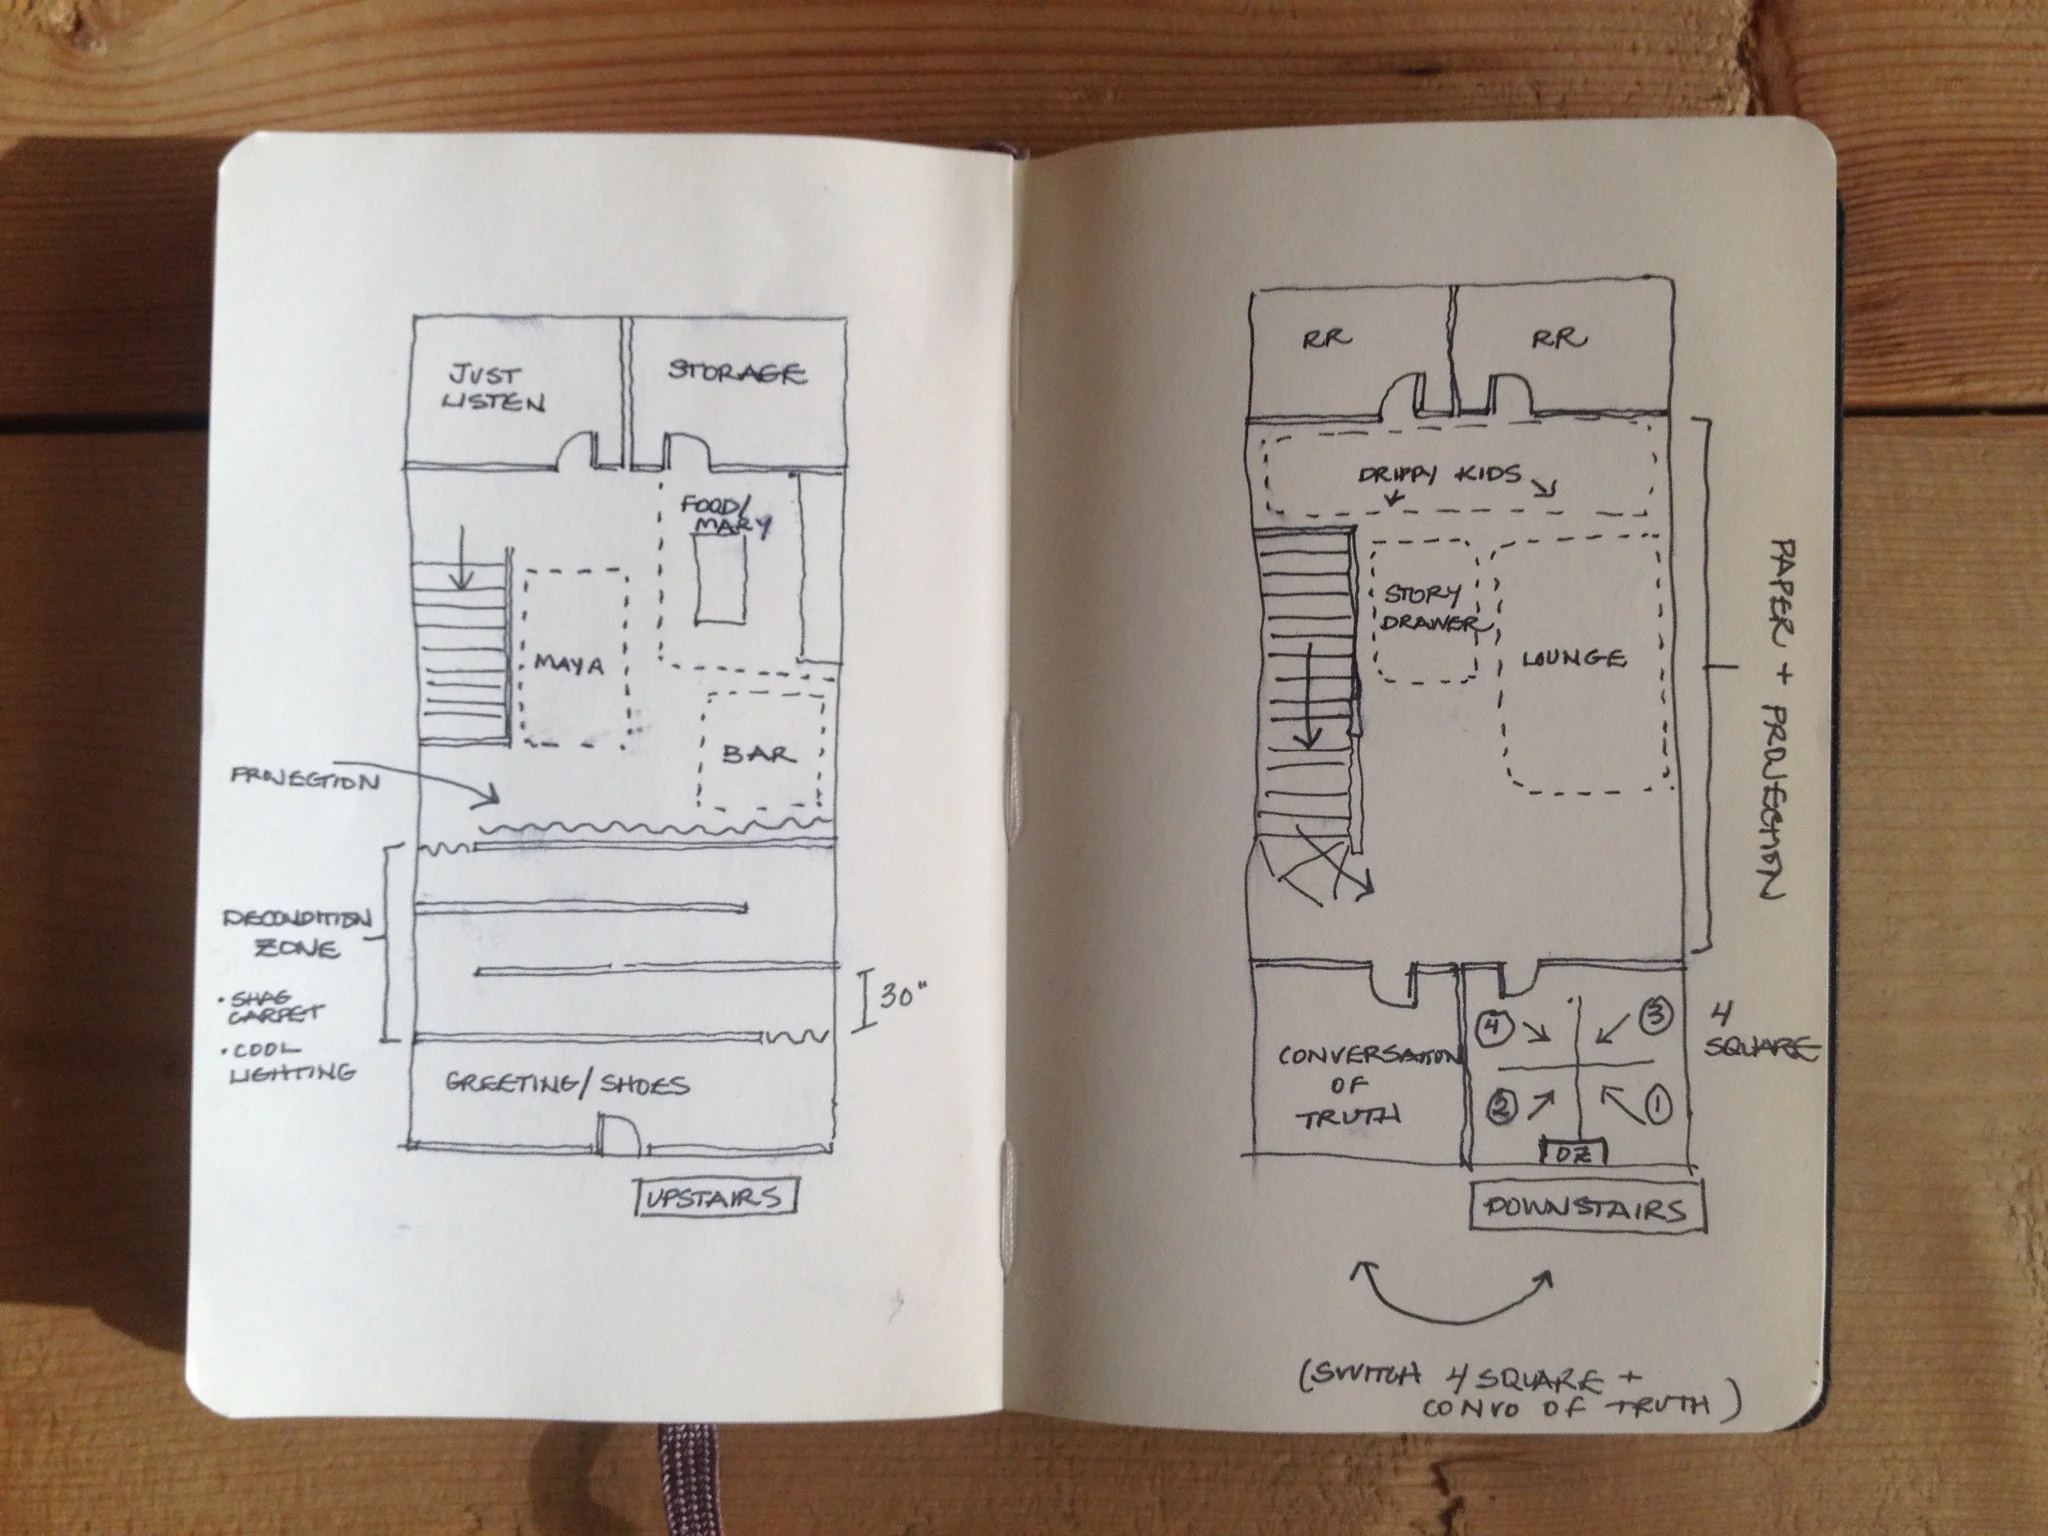 JUST
LISTEN
STORAGE
FOOD/
MARY
MAYA
BAR
PROJECTION
DECONDITION
ZONE
• SHAG
CARPET
• COOL
LIGHTING
30"
GREETING/SHOES
UPSTAIRS
RR
RR
DRIPPY KIDS
STORY
DRAWER
LOUNGE
PAPER + PROJECTION
CONVERSATION
OF
TRUTH
4
3
2
1
DZ
4
SQUARE
DOWNSTAIRS
(SWITCH 4 SQUARE +
CONVO OF TRUTH)